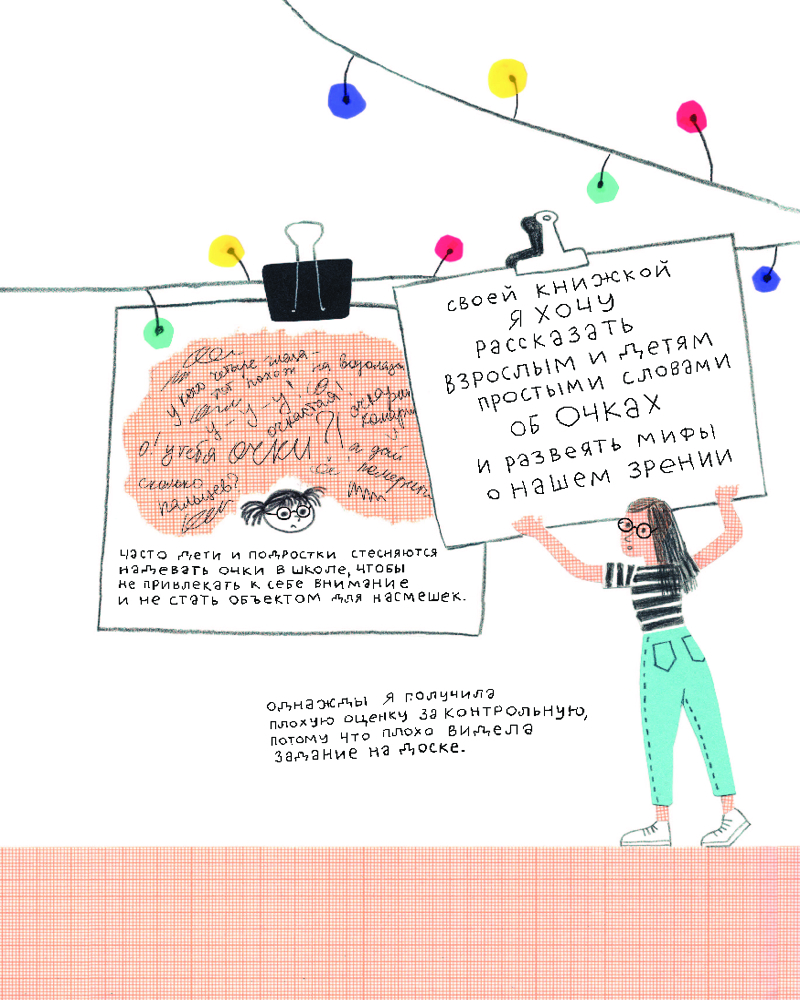 у кого четыре глаза –
тот похож на водолаза
у-у-у! 
очкастая!
о! у тебя очки?!
а дай
померить
сколько
пальцев?
часто дети и подростки стесняются
надевать очки в школе, чтобы
не привлекать к себе внимание
и не стать объектом для насмешек.
своей книжкой
я хочу
рассказать
взрослым и детям
простыми словами
об очках
и развеять мифы
о нашем зрении
однажды я получила
плохую оценку за контрольную,
потому что плохо видела
задание на доске.